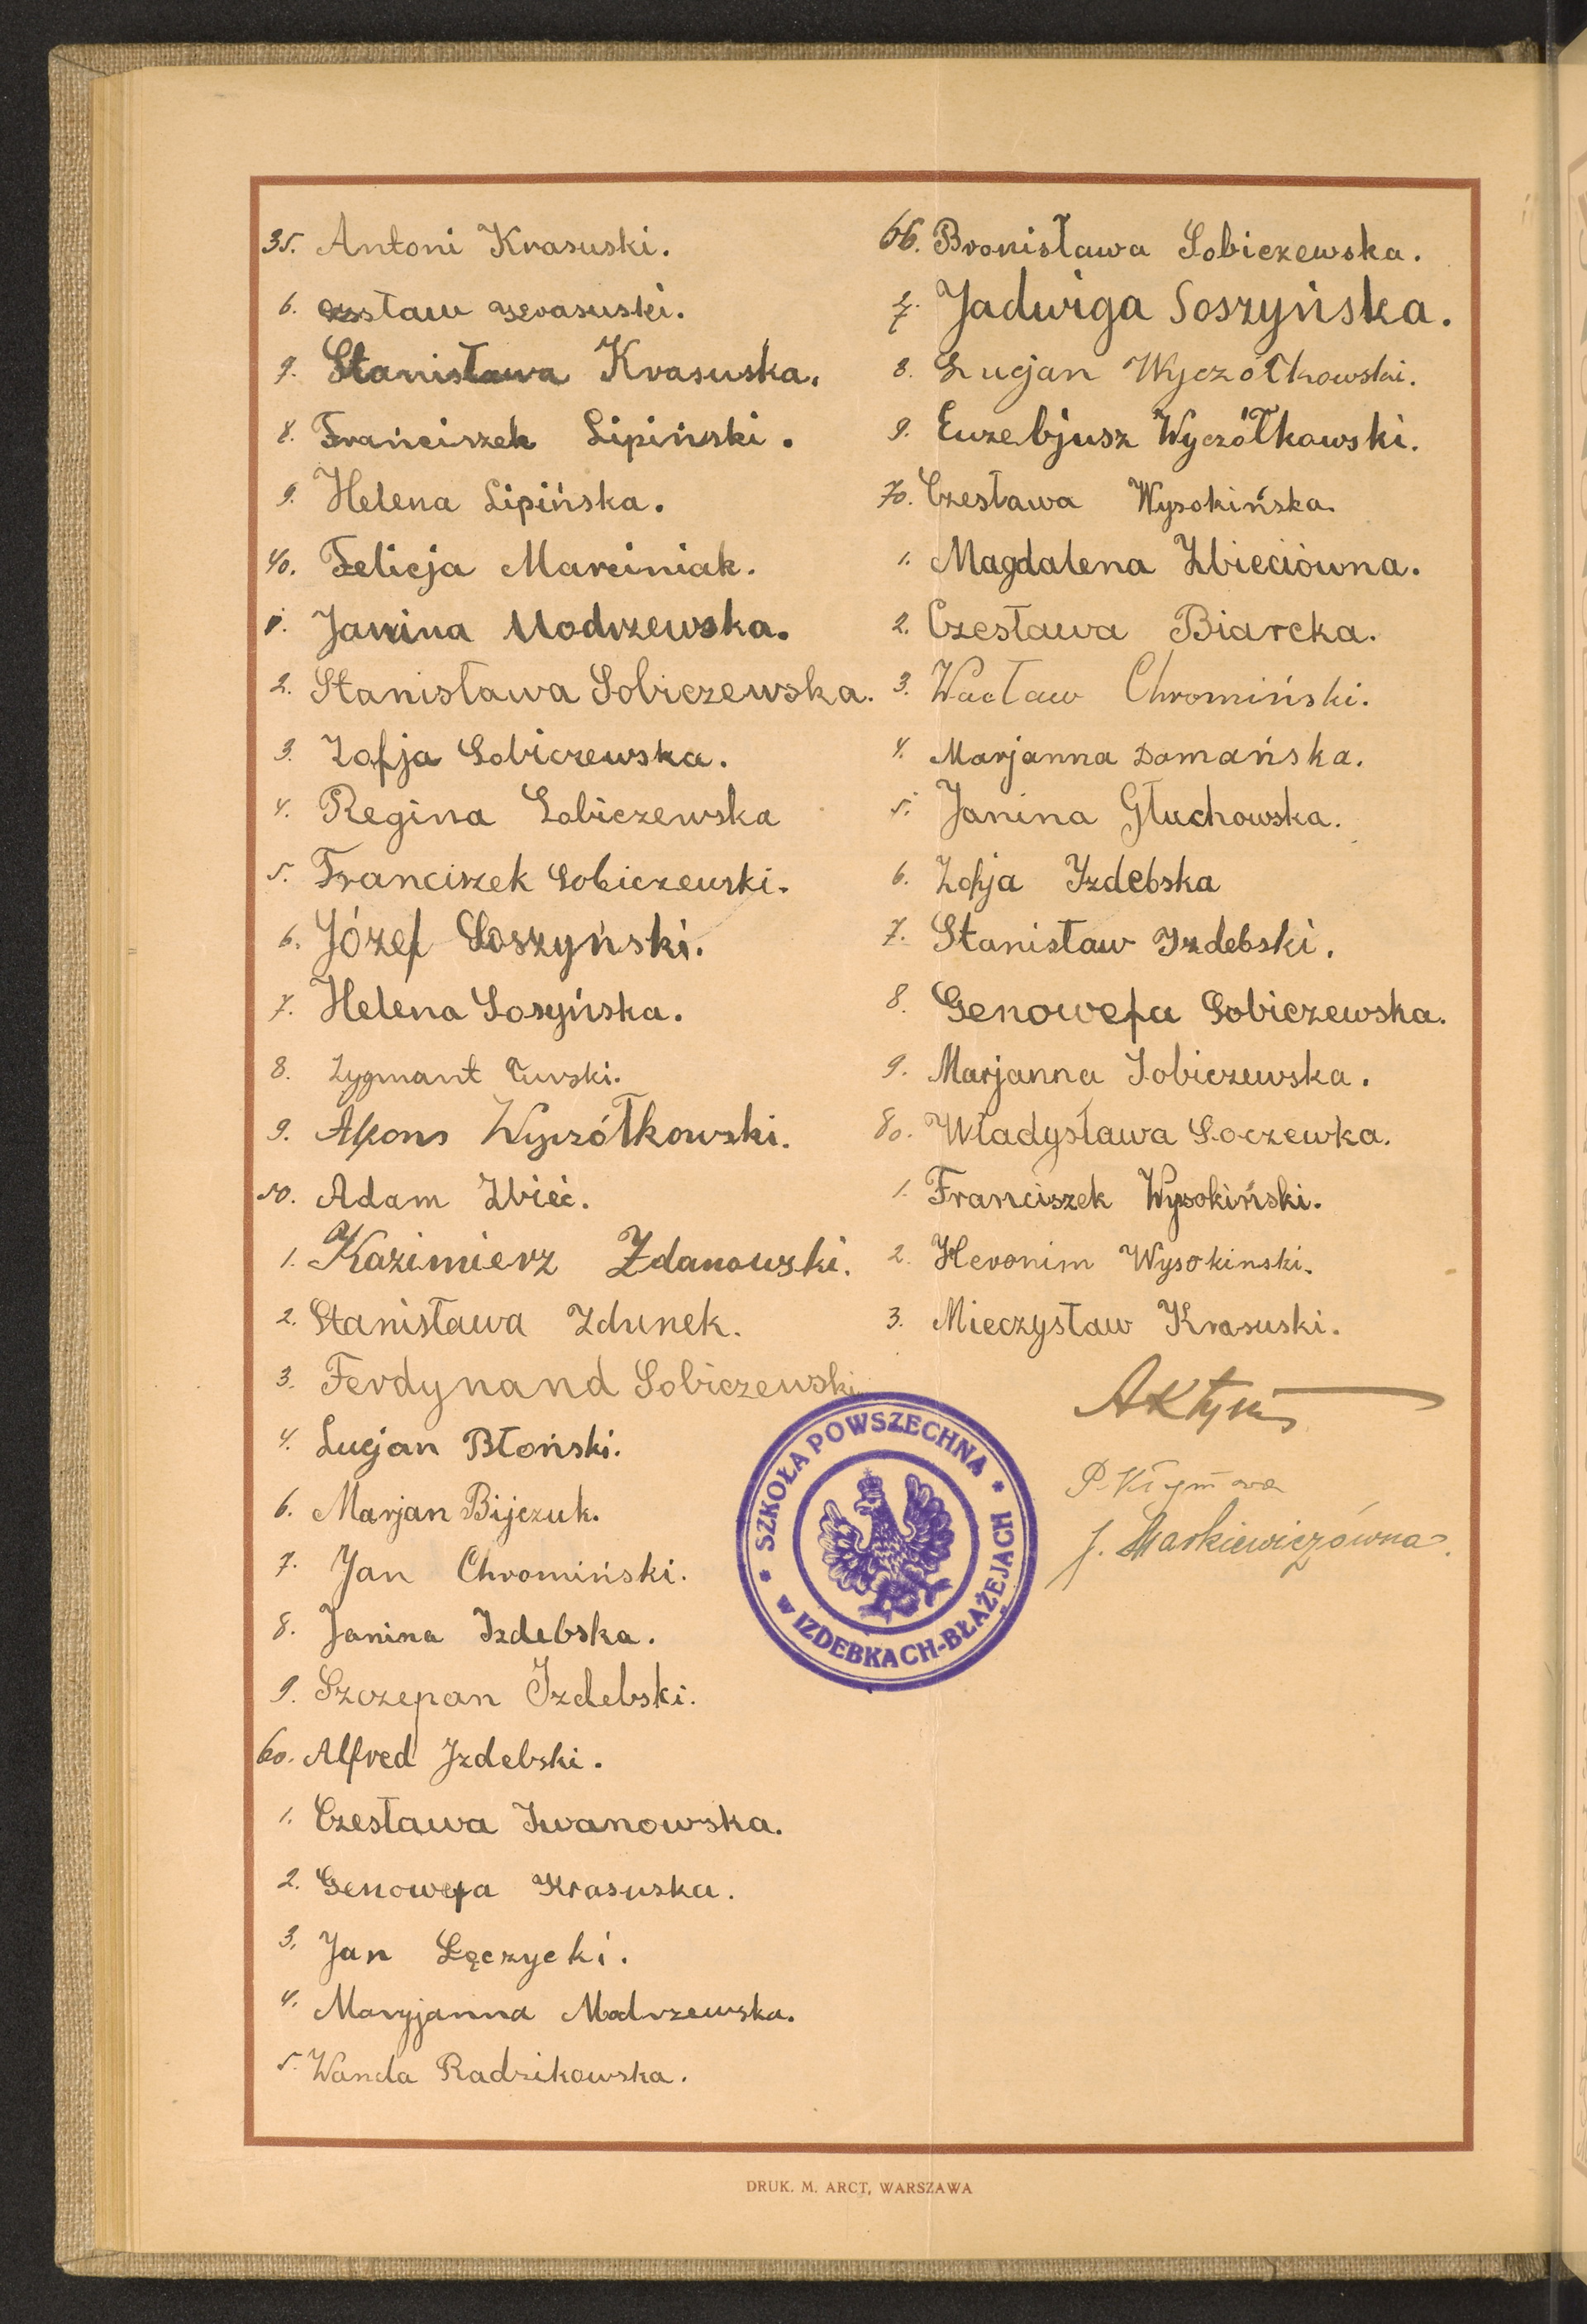 35. Antoni Krasuski.
6. Czesław Krasuski.
7. Stanisława Krasuska.
8. Franciszek Lipiński.
9. Helena Lipińska.
40. Felicja Marciniak.
1. Janina Modrzewska.
2. Stanisława Sobiczewska.
3. Zofja Sobiczewska.
4. Regina Sobiczewska
5. Franciszek Sobiczewski.
6. Józef Soszyński.
7. Helena Sosyńska.
8. Zygmant
9. Alfons Wyczółkowski.
50. Adam Zbieć.
1. Kazimierz Zdanowski.
2. Stanisława Zdunek.
3. Ferdynand Sobiczewski
4. Lucjan Błoński.
6. Marjan Bijczuk.
7. Jan Chromiński.
8. Janina Izdebska.
9. Szczepan Izdebski.
60. Alfred Izdebski.
1. Czesława Iwanowska.
2. Genowefa Krasuska.
3. Jan Łęczycki.
4. Maryjanna Modrzewska.
5. Wanda Radzikowska.
66. Bronisława Sobiczewska.
7. Jadwiga Soszyńska.
8. Lucjan Wyczółkowski.
9. Euzebjusz Wyczółkowski.
70. Czesława Wysokińska.
1. Magdalena Zbieciówna.
2. Czesława Biarcka.
3. Wacław Chromiński.
4. Marjanna Domańska.
5. Janina Głuchowska.
6. Zofja Izdebska
7. Stanisław Izdebski.
8. Genowefa Sobiczewska.
9. Marjanna Sobiczewska.
80. Władysława Soczewka.
1. Franciszek Wysokiński.
2. Heronim Wysokinski.
3. Mieczysław Krasuski.
P.
J. Markiewiczówna.
SZKOŁA POWSZECHNA
w IZDEBKACH-BŁAŻEJACH
DRUK. M. ARCT, WARSZAWA